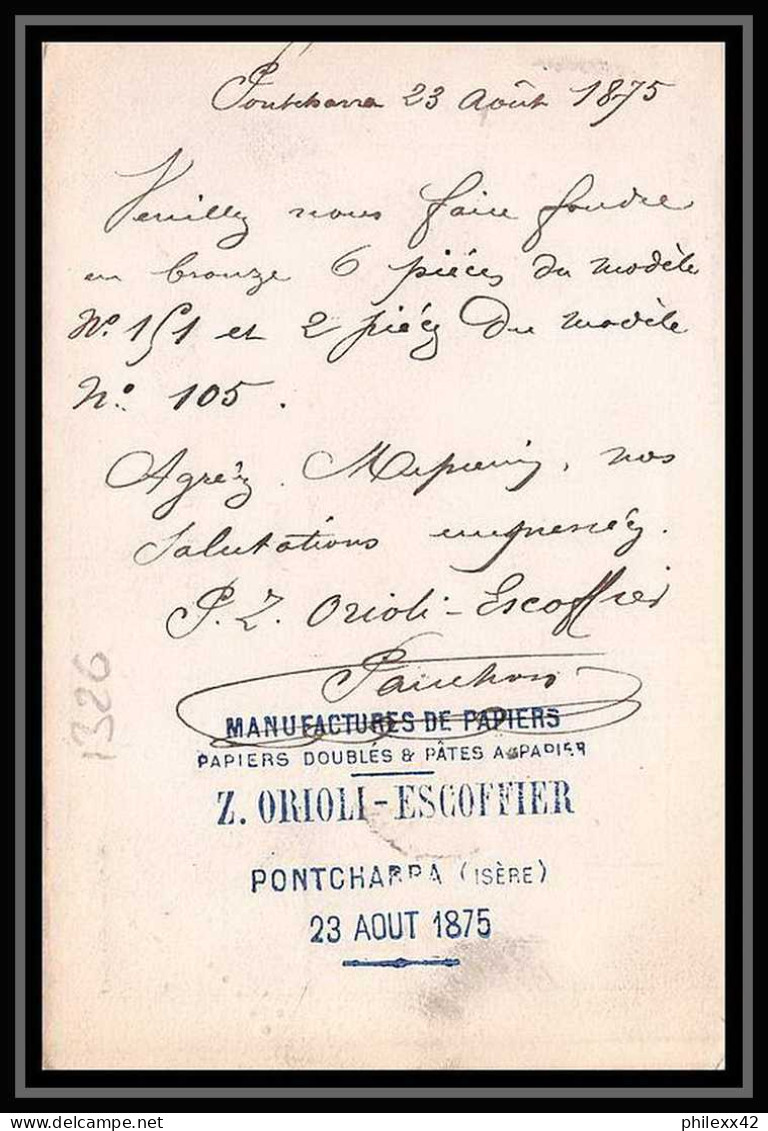 Pontcharra 23 Août 1875
Veuillez nous faire fondre
en bronze 6 pièces du modèle
N° 151 et 2 pièces du modèle
N° 105.
Agréez, Messieurs, nos
salutations empressées.
P. Z. Orioli-Escoffier
1326
MANUFACTURES DE PAPIERS
PAPIERS DOUBLÉS & PÂTES A PAPIER
Z. ORIOLI-ESCOFFIER
PONTCHARRA (ISÈRE)
23 AOUT 1875
philexx42